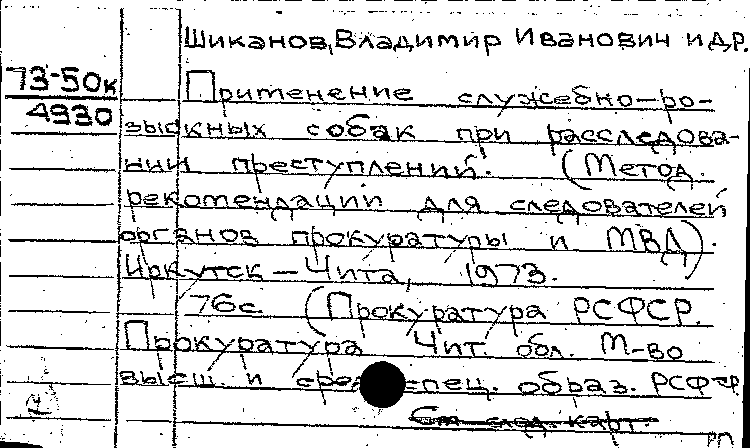 Шиканов, Владимир Иванович и др.
73-50к
4930
Применение служебно-ро-
зыскных собак при расследова-
нии преступлений. (Метод.
рекомендации для следователей
органов прокуратуры и МВД).
Иркутск - Чита, 1973.
76с. (Прокуратура РСФСР.
Прокуратура Чит. обл. М-во
высш. и спец. образ. РСФСР
См. след. карт.
РП